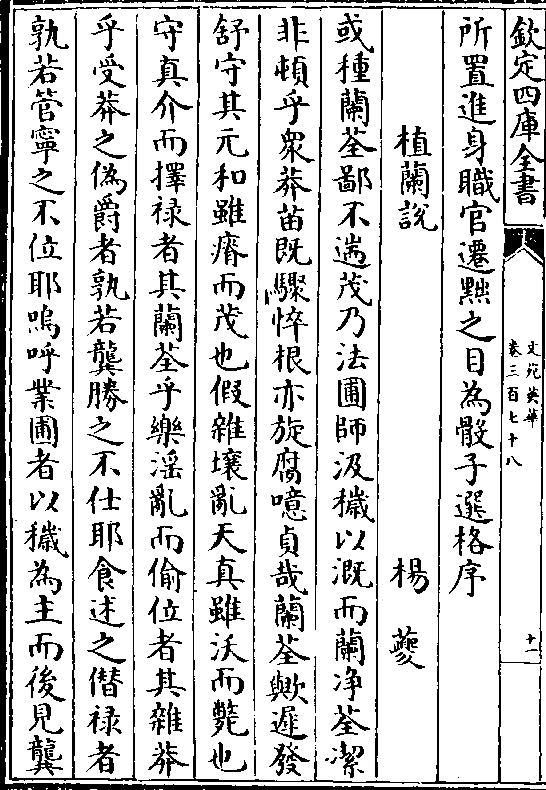 欽定四庫全書
文苑英華
卷三百七十八
十一
所置進身職官遷黜之目為骰子選格序
植蘭說
楊夔
或種蘭荃鄙不遄茂乃法圃師汲穢以溉而蘭净荃潔
非頓乎衆莽苗既驟悴根亦旋腐噫貞哉蘭荃歟遲發
舒守其元和雖瘠而茂也假雜壤亂天真雖沃而斃也
守真介而擇祿者其蘭荃乎樂淫亂而偷位者其雜莽
乎受莽之偽爵者孰若龔勝之不仕耶食述之僣祿者
孰若管寧之不位耶嗚呼業圃者以穢為主而後見龔